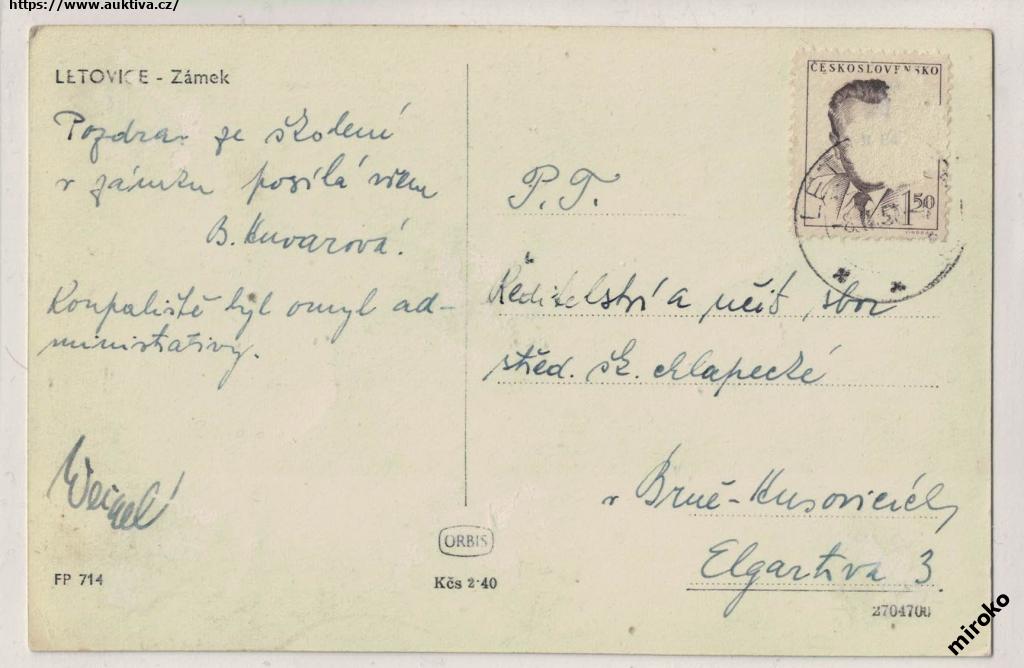 https://www.auktiva.cz/
LETOVICE - Zámek
Pozdrav ze školení
v zámku posílá všem
B. Kuvarová.
Koupaliště byl omyl ad-
ministrativy.
FP 714
ORBIS
Kčs 2·40
ČESKOSLOVENSKO
1 50
P. T.
Ředitelství a učit. sbor
střed. šk. chlapecké
v Brně-Husovicích,
Elgartova 3
2704708
miroko